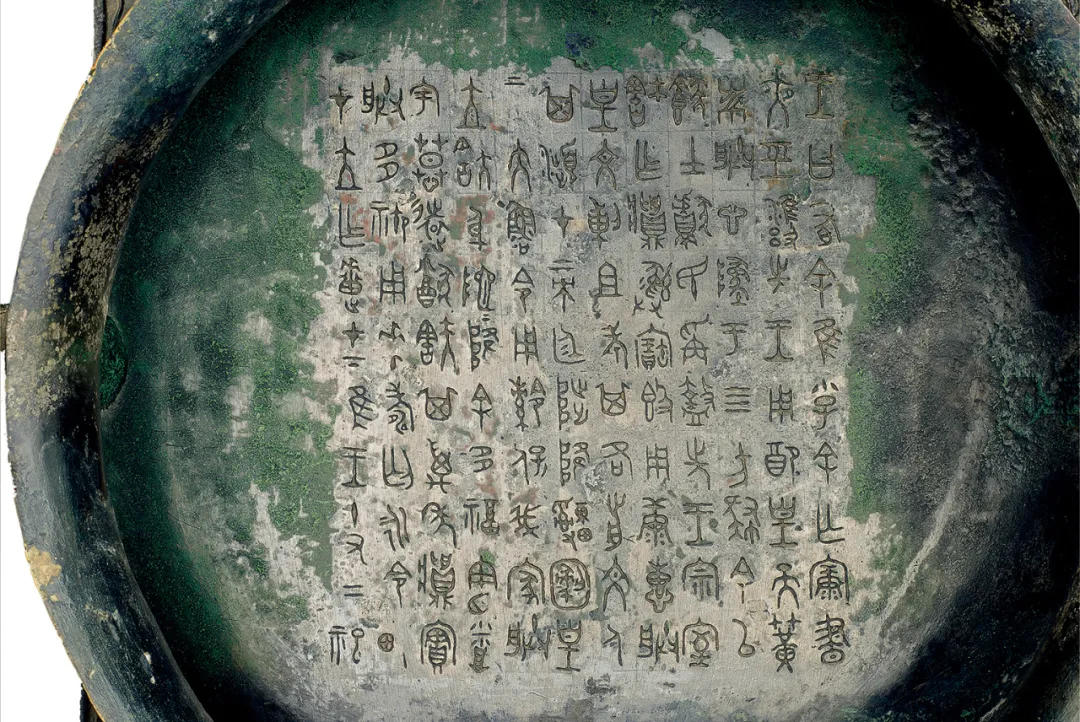 王曰有余隹小子余亡康晝
夜巠雝先王用配皇天簧
黹朕心墜于四方肆余以
餕士獻民爯盩先王宗室
㝬乍彝寶簋用康惠朕
皇文剌且考其各前文人
其瀕才帝廷陟降皇
上大魯令用保我家朕
立㝬身阤降余多福憲烝
宇慕遠猷㝬其萬年實
朕多御用壽匄永令畯
才立乍疐才下隹王十又二祀